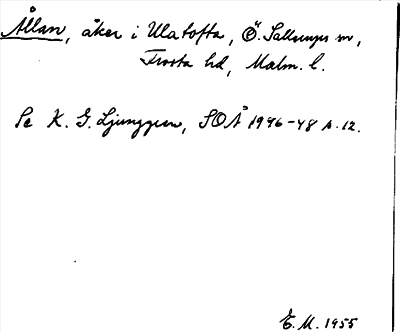 Ållan, åker i Ulatofta, Ö. Sallerups sn,
Frosta hd, Malm. l.
Se K. G. Ljunggren, SOÅ 1946-48 s. 12.
E. M. 1955